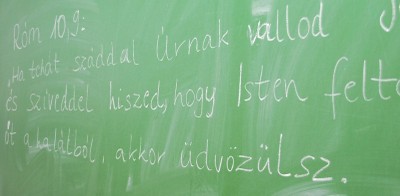 Róm 10,9:
„Ha tehát száddal Úrnak vallod J
és szíveddel hiszed, hogy Isten felta
őt a halálból, akkor üdvözülsz.